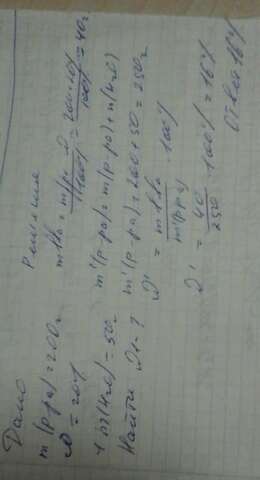 Дано
m (р-ра) = 200г
ω = 20%
+ m(H2O) = 50г
Найти ω1 - ?
Решение
m в-ва = m р-ра · ω / 100% = 200 · 20% / 100% = 40г
m'(р-ра) = m(р-ра) + m(H2O)
m'(р-ра) = 200 + 50 = 250г
ω' = m в-ва / m'(р-ра) · 100%
ω' = 40 / 250 · 100% = 16%
Ответ 16%